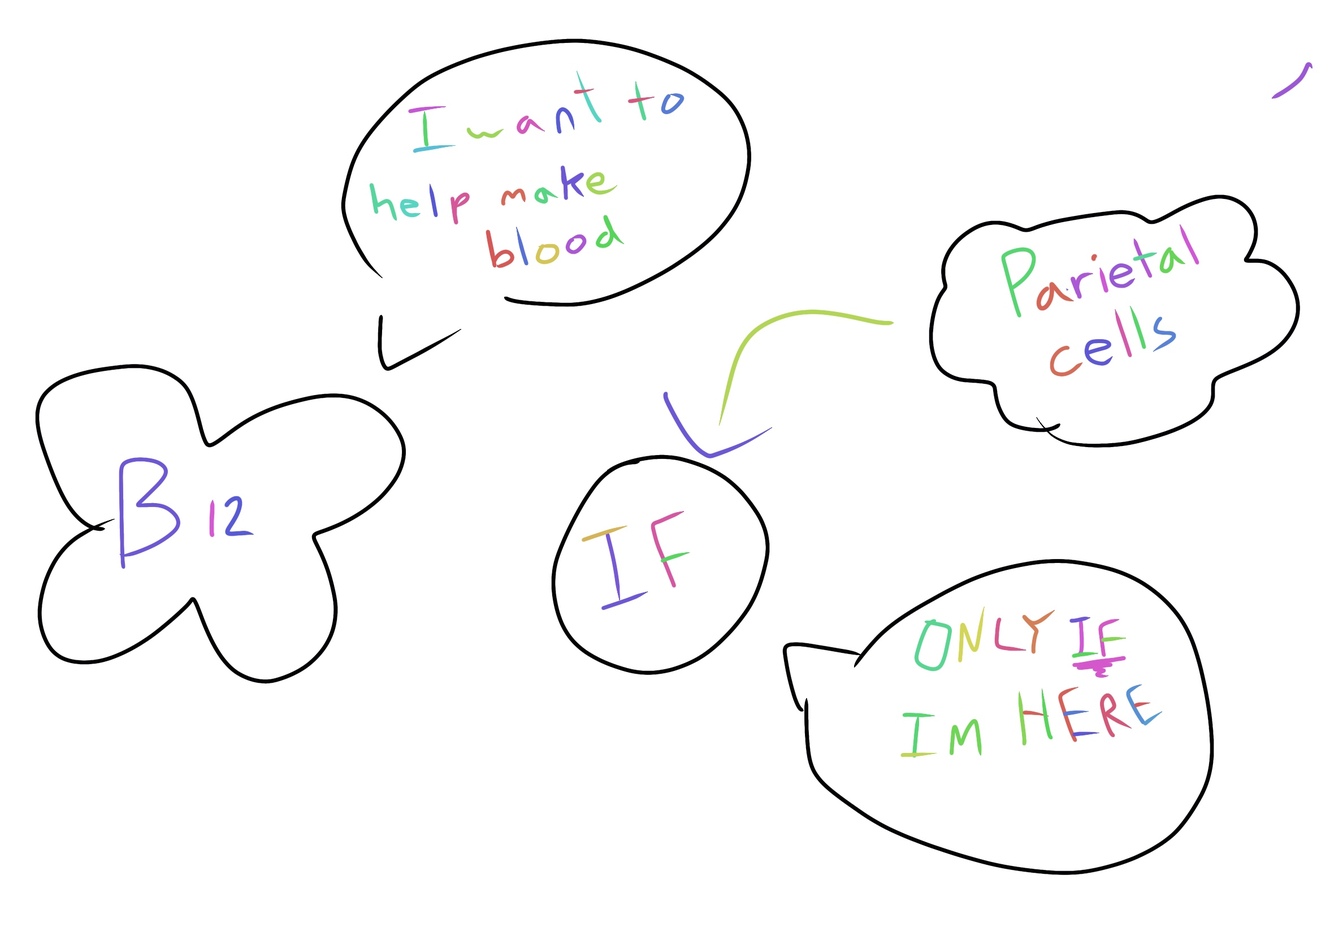 I want to
help make
blood
Parietal
cells
B12
IF
ONLY IF
Im HERE